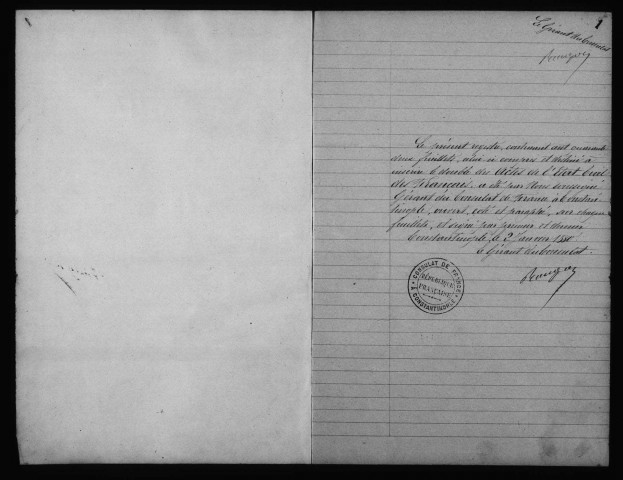 1
Le Gérant du Consulat
Le présent registre, contenant cent quarante
deux feuillets, celui-ci compris et destiné à
inscrire le double des Actes de l'Etat Civil
des Français, a été par Nous soussigné
Gérant du Consulat de France à Constan
tinople, ouvert, coté et paraphé, sur chaque
feuillet, et signé par premier et dernier
Constantinople, le 2 Janvier
Le Gérant du Consulat.
CONSULAT DE FRANCE
A CONSTANTINOPLE
RÉPUBLIQUE
FRANÇAISE